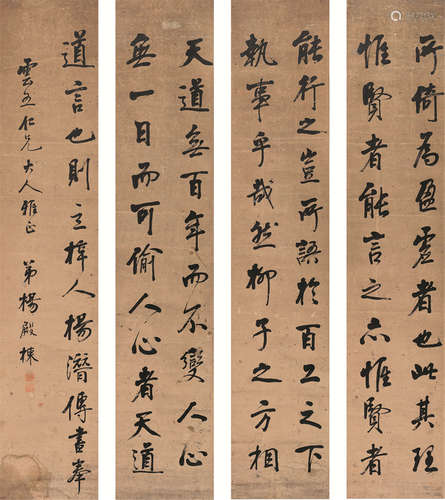 所倚為盈虛者也此其理
惟賢者能言之亦惟賢者
能行之豈所語於百工之下
執事乎哉然柳子之方相
天道無百年而不變人心
無一日而可偷人心者天道
道言也則立梓人楊潛傳書奉
雲五仁兄大人雅正
弟楊殿棟